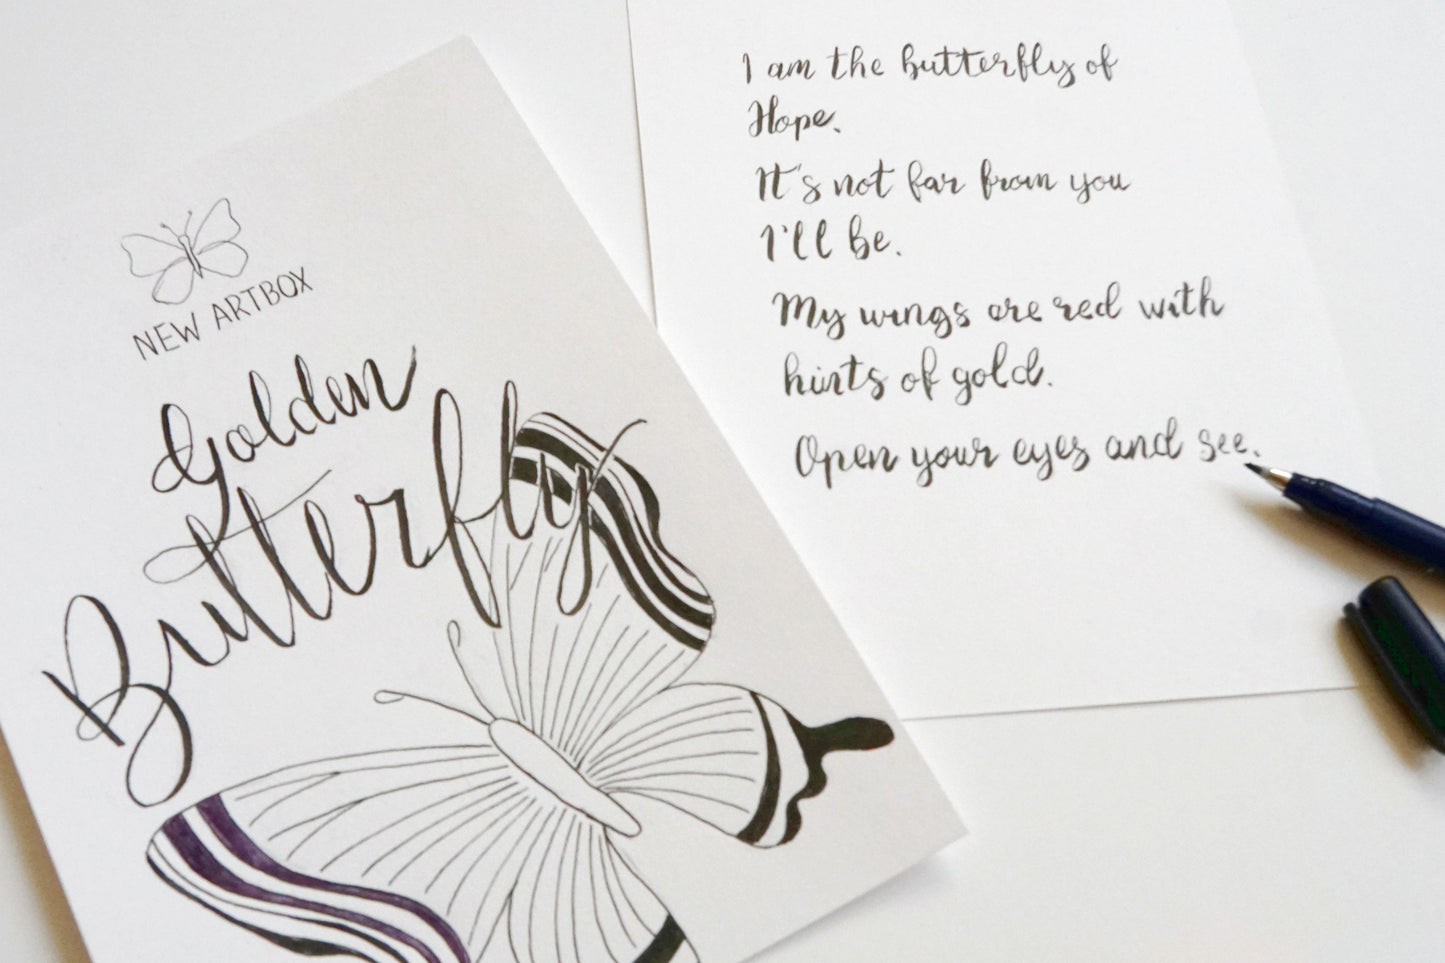 NEW ARTBOX
Golden
Butterfly
I am the butterfly of
Hope.
It's not far from you
I'll be.
My wings are red with
hints of gold.
Open your eyes and see.